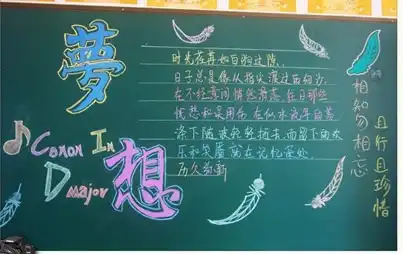 夢想
Canon In
D major
时光荏苒如白驹过隙,
日子总是像从指尖渡过的细沙,
在不经意间悄然滑落。往日那些
忧愁和
在似水流年的荡
涤下随波轻轻逝去,而留下的欢
乐和笑靥
在记忆深处,
历久弥新
相知勿相忘
且行且珍惜